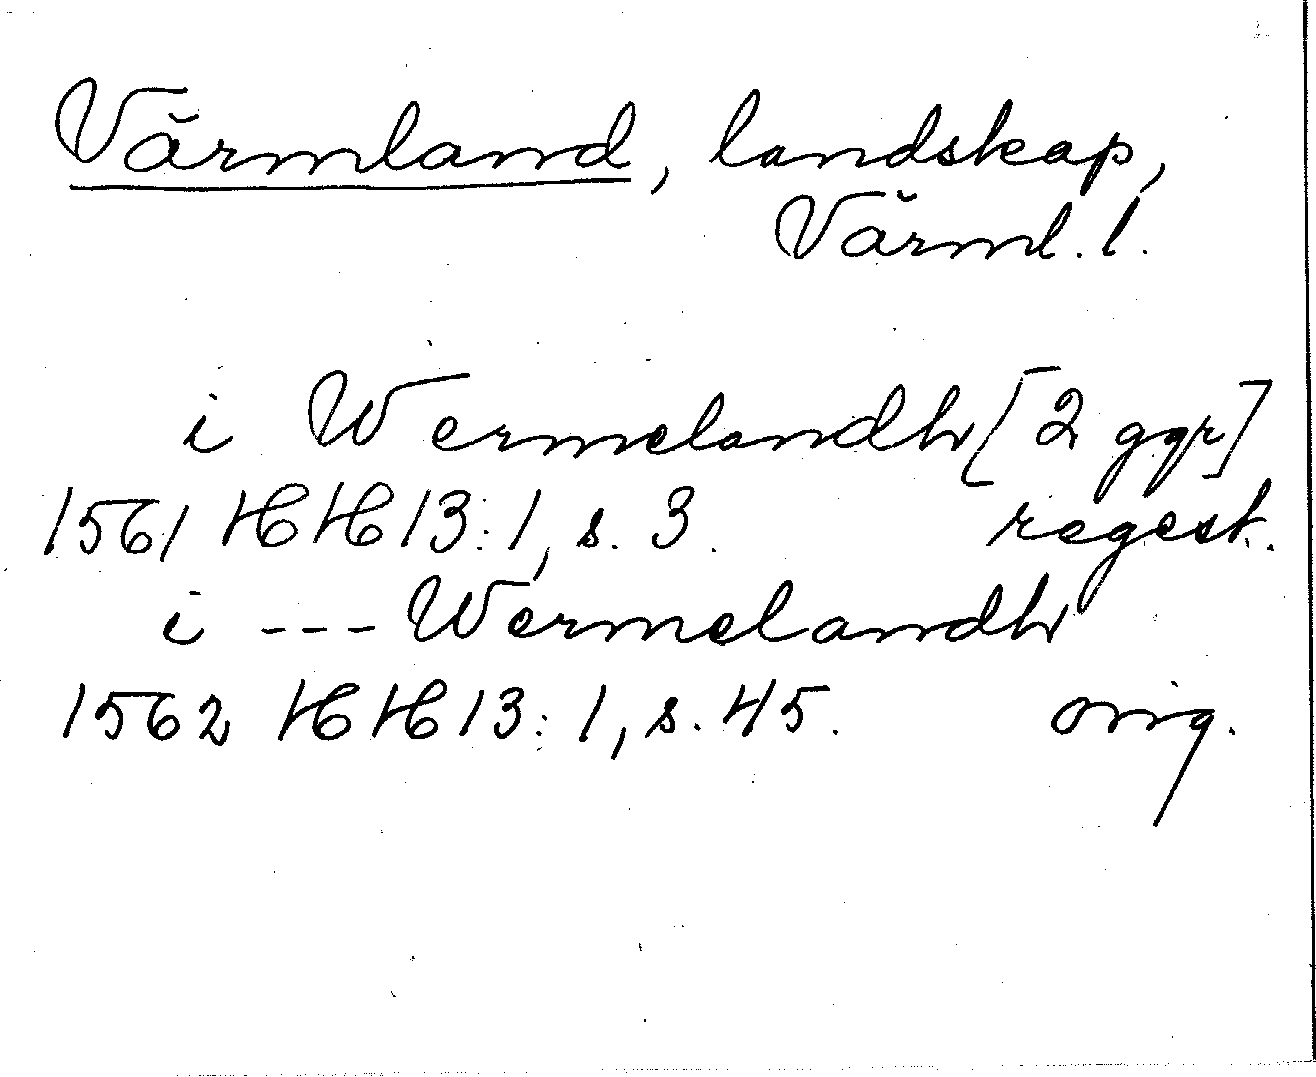 Värmland, landskap,
Värml. l.
i Wermelandh [2 ggr]
1561 HH 13:1, s. 3. regest.
i --- Wermelandh
1562 HH 13:1, s. 45. orig.